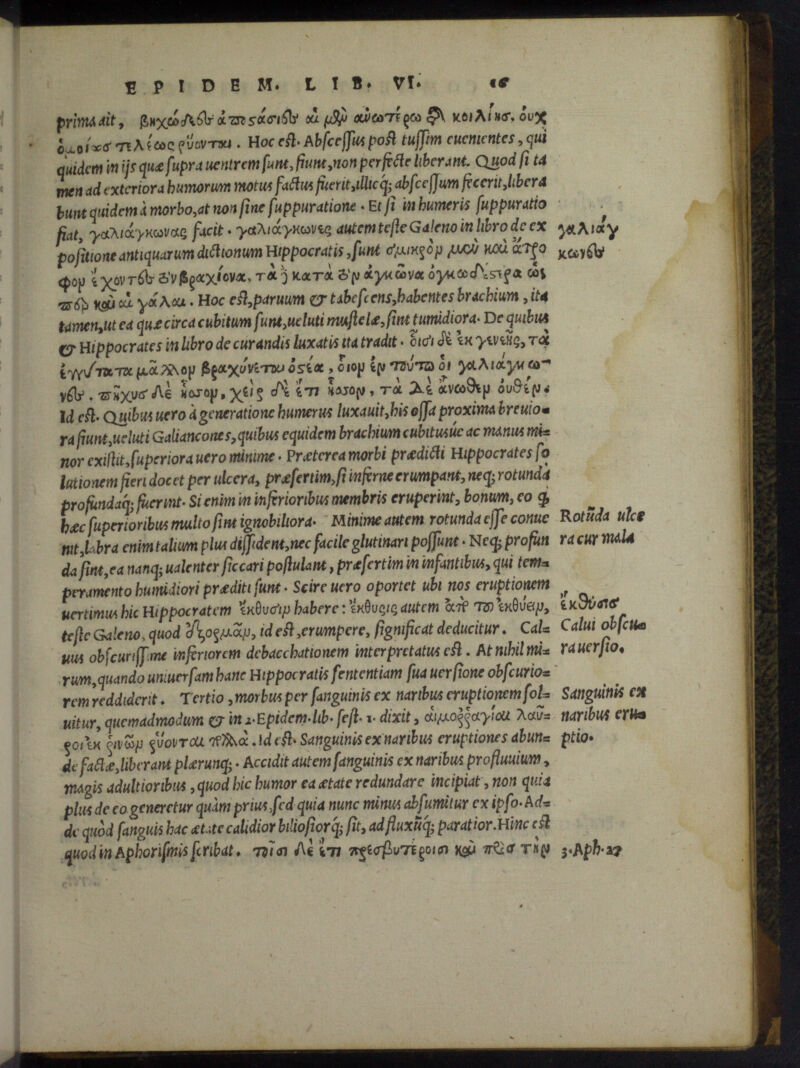 EPIDEM. LIB. VI. 16
prima ait, βηχώδεες ἀποστάσιες αἱ μὲν ἀνωτέρω τῆς κοιλίης. οὐχ
ὁμοίως τελέως ῥύονται. Hoc est. Abscessus post tussim euenientes, qui
quidem in ijs quæ supra uentrem sunt, fiunt, non perfecte liberant. Quod si ta
men ad exteriora humorum motus factus fuerit, illicq; abscessum fecerit, libera
bunt quidem à morbo, at non sine suppuratione. Et si in humeris suppuratio
fiat, γαλιάγκωνας facit. γαλιάγκωνες autem teste Galeno in libro de ex γαλιάγ
positione antiquarum dictionum Hippocratis, sunt σμικρὸν μὲν καὶ ἄτρο κωνες
φον ἔχοντες τὸν βραχίονα, τὰ δὲ κατὰ τὸν ἀγκῶνα ὀγκωδέστερα ὡς
περ καὶ αἱ γάλαι. Hoc est, paruum & tabescens, habentes brachium, ita
tamen, ut ea quæ circa cubitum sunt, ueluti mustelæ, sint tumidiora. De quibus
& Hippocrates in libro de curandis luxatis ita tradit. οἷσι δὲ ἐκ γενεῆς, τὰ
ἐγγύτατα μᾶλλον βραχύνεται ὀστέα, οἷον ἐν τούτῳ οἱ γαλιάγκω-
νες. πῆχυς δὲ ἧσσον, χεὶρ δὲ ἔτι ἧσσον, τὰ δὲ ἄνωθεν οὐθέν.
Id est. Quibus uero à generatione humerus luxauit, his ossa proxima breuio=
ra fiunt, ueluti Galiancones, quibus equidem brachium cubitusúe ac manus mi=
nor existit, superiora uero minime. Præterea morbi prædicti Hippocrates so
lutionem fieri docet per ulcera, præsertim, si inferne erumpant, neq; rotunda
profundaq; fuerint. Si enim in inferioribus membris eruperint, bonum, eo q
hæc superioribus multo sint ignobiliora. Minime autem rotunda esse conue Rotūda ulce
nit, labra enim talium plus dissident, nec facile glutinari possunt. Neq; profun ra cur mala
da sint, ea nanq; ualenter siccari postulant, præsertim in infantibus, qui tem=
peramento humidiori præditi sunt. Scire uero oportet ubi nos eruptionem
uertimus hic Hippocratem ἔκθυσιν habere: ἔκθυσις autem ἀπὸ τοῦ ἐκθύειν, ἔκθυσις
teste Galeno, quod ὁρμᾶν, id est, erumpere, significat deducitur. Cal= Calui obscu=
uus obscurissime inferiorem debacchationem interpretatus est. At nihil mi= ra uersio.
rum, quando uniuersam hanc Hippocratis sententiam sua uersione obscurio=
rem reddiderit. Tertio, morbus per sanguinis ex naribus eruptionem sol= Sanguinis ex
uitur, quemadmodum & in 2. Epidem. lib. sest. 1. dixit, αἱμοῤῥαγίαι λαῦ= naribus eru=
ροι ἐκ ῥινῶν ῥύονται πολλά. Id est. Sanguinis ex naribus eruptiones abun= ptio.
de factæ, liberant plærunq;. Accidit autem sanguinis ex naribus profluuium,
magis adultioribus, quod hic humor ea ætate redundare incipiat, non quia
plus de eo generetur quàm prius, sed quia nunc minus absumitur ex ipso. Ad=
de quòd sanguis hac ætate calidior biliosiorq; sit, ad fluxūq; paratior. Hinc est
quod in Aphorismis scribat. τοῖσι δὲ ἔτι πρεσβυτέροισι καὶ πρὸς τὴν 3. Aph. 27